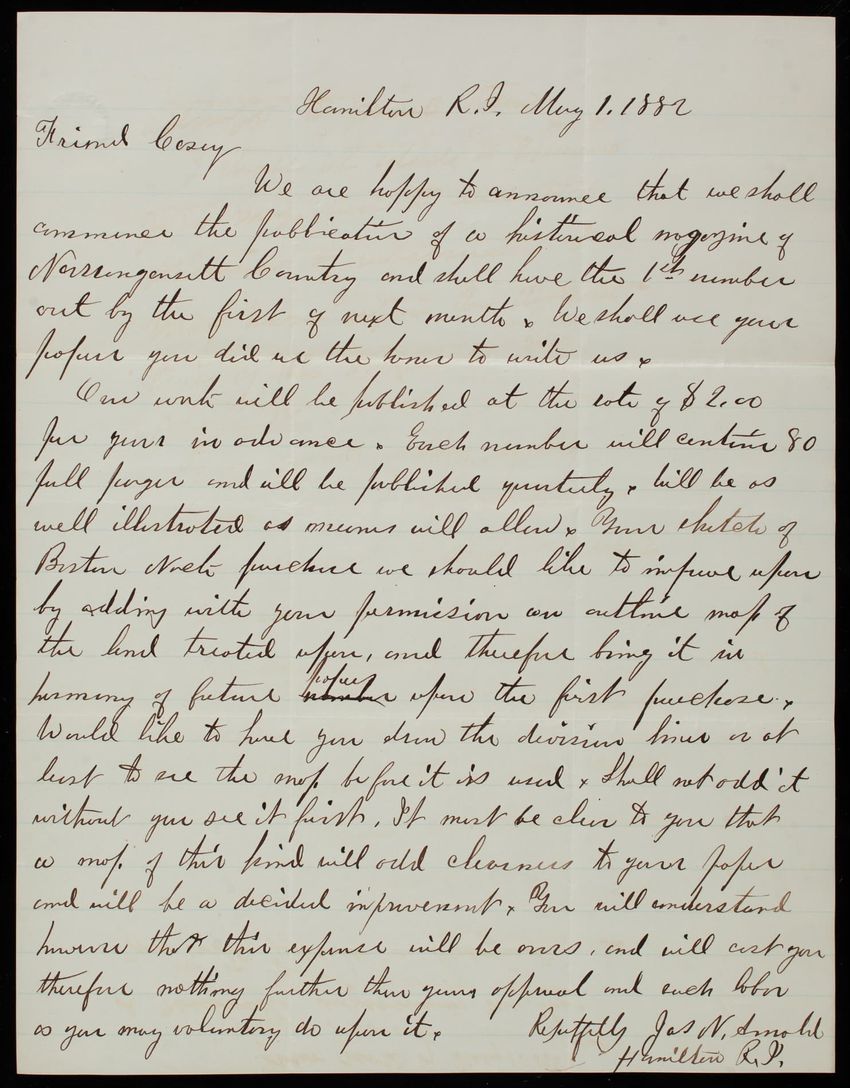 Hamilton R.I. May 1. 1882
Friend Casey
We are happy to announce that we shall
commence the publication of a historical magazine of
Narragansett Country and shall have the 1st number
out by the first of next month. We shall use your
paper you did us the honor to write us.
Our work will be published at the rate of $2.00
per year in advance. Each number will contain 80
full pages and will be published quarterly. Will be as
well illustrated as means will allow. Your sketch of
Boston Neck purchase we should like to improve upon
by adding with your permission an outline map of
the land treated upon, and therefore bring it in
harmony of future papers upon the first purchase.
Would like to have you draw the division lines or at
least to see the map before it is used. Shall not add it
without you see it first. It must be clear to you that
a map of this kind will add clearness to your paper
and will be a decided improvement. You will understand
however that this expense will be ours, and will cost you
therefore nothing further than your approval and such labor
as you may voluntary do upon it.
Respectfully Jas N. Arnold
Hamilton R.I.